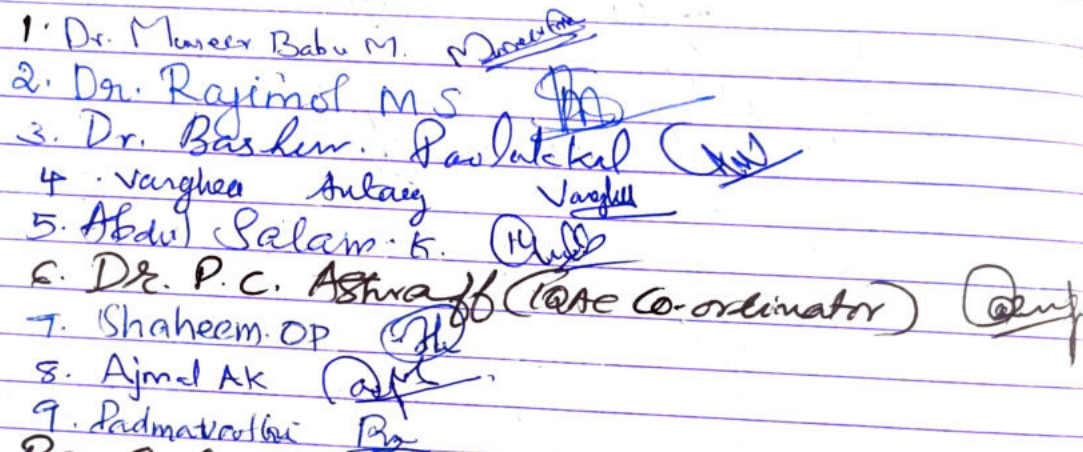 1. Dr. Muneer Babu M.
2. Dr. Rajimol M S
3. Dr. Basheer. Poolakkal
4. Varghese Antony Varghese
5. Abdul Salam. K.
6. Dr. P. C. Ashraff (IQAC Co-ordinator)
7. Shaheem. OP
8. Ajmal AK
9. Padmavathi